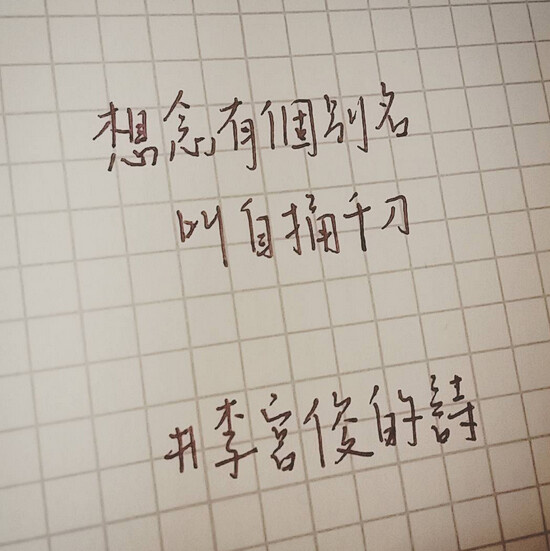 想念有個別名
叫自捅千刀
#李宮俊的詩